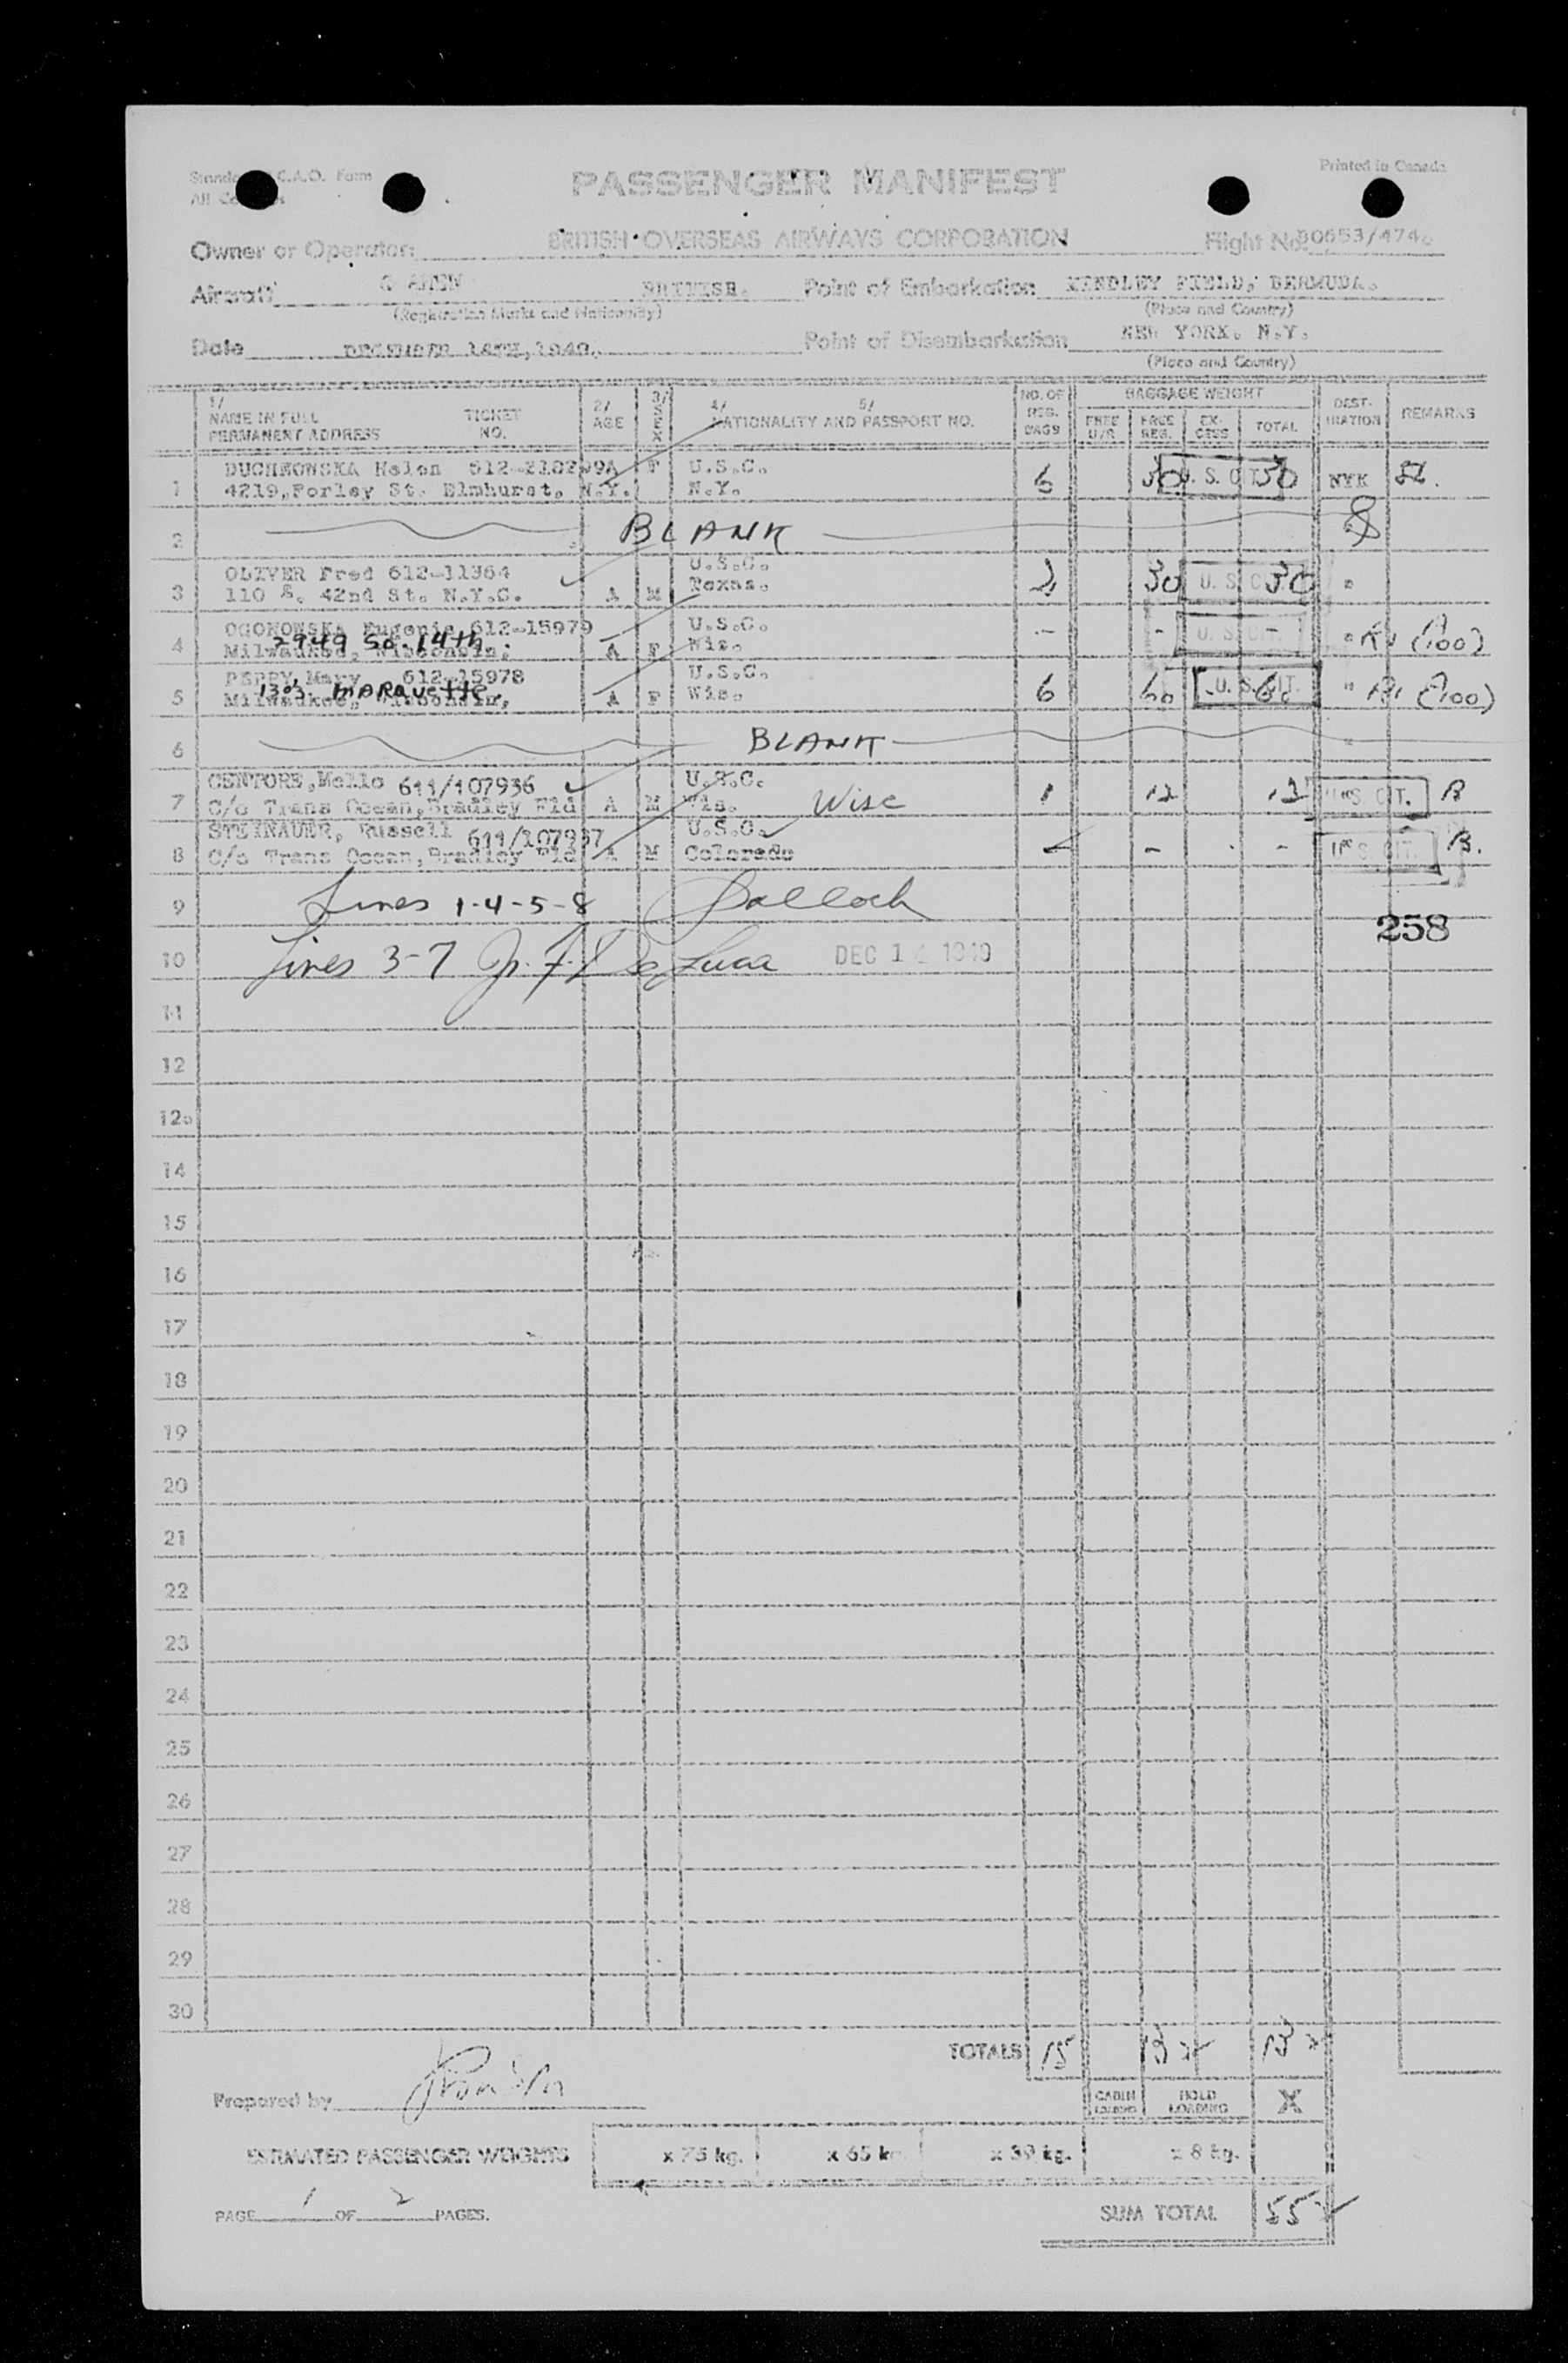 PASSENGER MANIFEST
Printed in Canada
Owner or Operator: BRITISH OVERSEAS AIRWAYS CORPORATION Flight No.
Aircraft BRITISH. Point of Embarkation KINDLEY FIELD, BERMUDA.
(Registration Marks and Nationality) (Place and Country)
Date DECEMBER 14TH, 1949. Point of Disembarkation NEW YORK. N.Y.
(Place and Country)
1/ NAME IN FULL PERMANENT ADDRESS TICKET NO. 2/ AGE 3/ SEX 4/ 5/ NATIONALITY AND PASSPORT NO. NO. OF REG. BAGS BAGGAGE WEIGHT FREE U/R FREE REG. EX-CESS TOTAL DEST-INATION REMARKS
DUCHNOWSKA Helen F U.S.C.
1 4219, Forley St. Elmhurst, N.Y. N.Y. 6 30 U.S. CIT. 30 NYK
2 BLANK
OLIVER Fred 612-11364 U.S.C.
3 110 E. 42nd St. N.Y.C. A M Texas. 3 30 U.S. CIT. 30 "
OGONOWSKA Eugenie 612-15979 U.S.C.
2949 So. 14th
4 Milwaukee, Wisconsin, A F Wis. - - U.S. CIT. - " (100)
PERRY Mary 612-15978 U.S.C.
1303 MARQUETTE
5 Milwaukee, Wisconsin, A F Wis. 6 60 U.S. CIT. 60 " (100)
6 BLANK "
CENTORE, Mello 611/107936 U.S.C.
7 C/o Trans Ocean, Bradley Fld A M Wis. Wisc 1 12 12 U.S. CIT. B
STEINAUER, Russell 611/107937 U.S.C.
8 C/o Trans Ocean, Bradley Fld A M Colorado - - - U.S. CIT. B.
9 Lines 1-4-5-8
258
10 Lines 3-7 De Luca DEC 14 1949
11
12
12a
14
15
16
17
18
19
20
21
22
23
24
25
26
27
28
29
30
TOTALS 15 132 132
Prepared by
CABIN LOADING HOLD LOADING X
ESTIMATED PASSENGER WEIGHTS x 75 kg. x 65 kg. x 39 kg. x 8 kg.
PAGE 1 OF 2 PAGES. SUM TOTAL